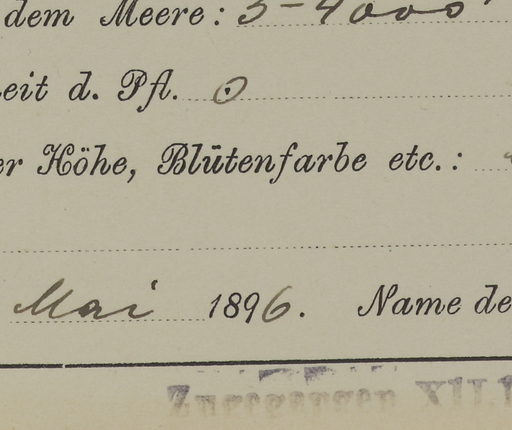 dem Meere: 3-4000'
eit d. Pfl. ☉
er Höhe, Blütenfarbe etc.:
Mai 1896. Name de
Zugegangen XII.1